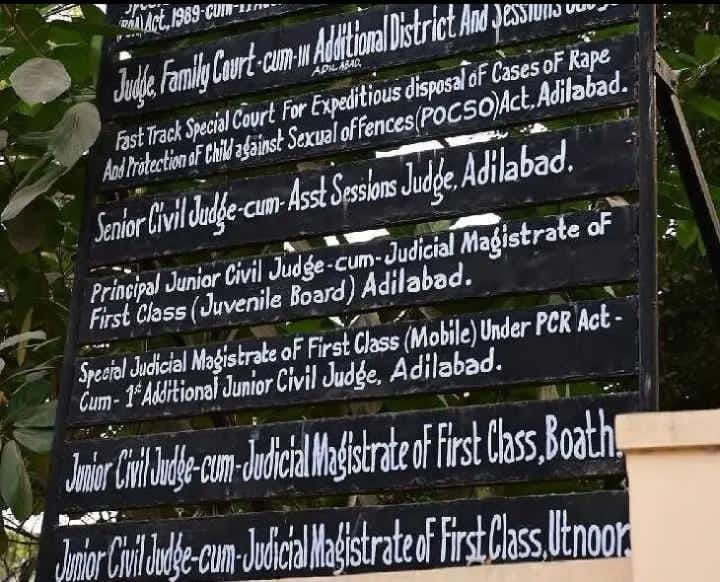 (POA) Act, 1989-cum-
Judge, Family Court-cum-III Additional District And Sessions Judge
ADILABAD.
Fast Track Special Court For Expeditious disposal of Cases of Rape
And Protection of Child against Sexual offences (POCSO) Act, Adilabad.
Senior Civil Judge-cum-Asst Sessions Judge, Adilabad.
Principal Junior Civil Judge-cum-Judicial Magistrate of
First Class (Juvenile Board) Adilabad.
Special Judicial Magistrate of First Class (Mobile) Under PCR Act-
Cum- 1st Additional Junior Civil Judge, Adilabad.
Junior Civil Judge-cum-Judicial Magistrate of First Class, Boath.
Junior Civil Judge-cum-Judicial Magistrate of First Class, Utnoor.